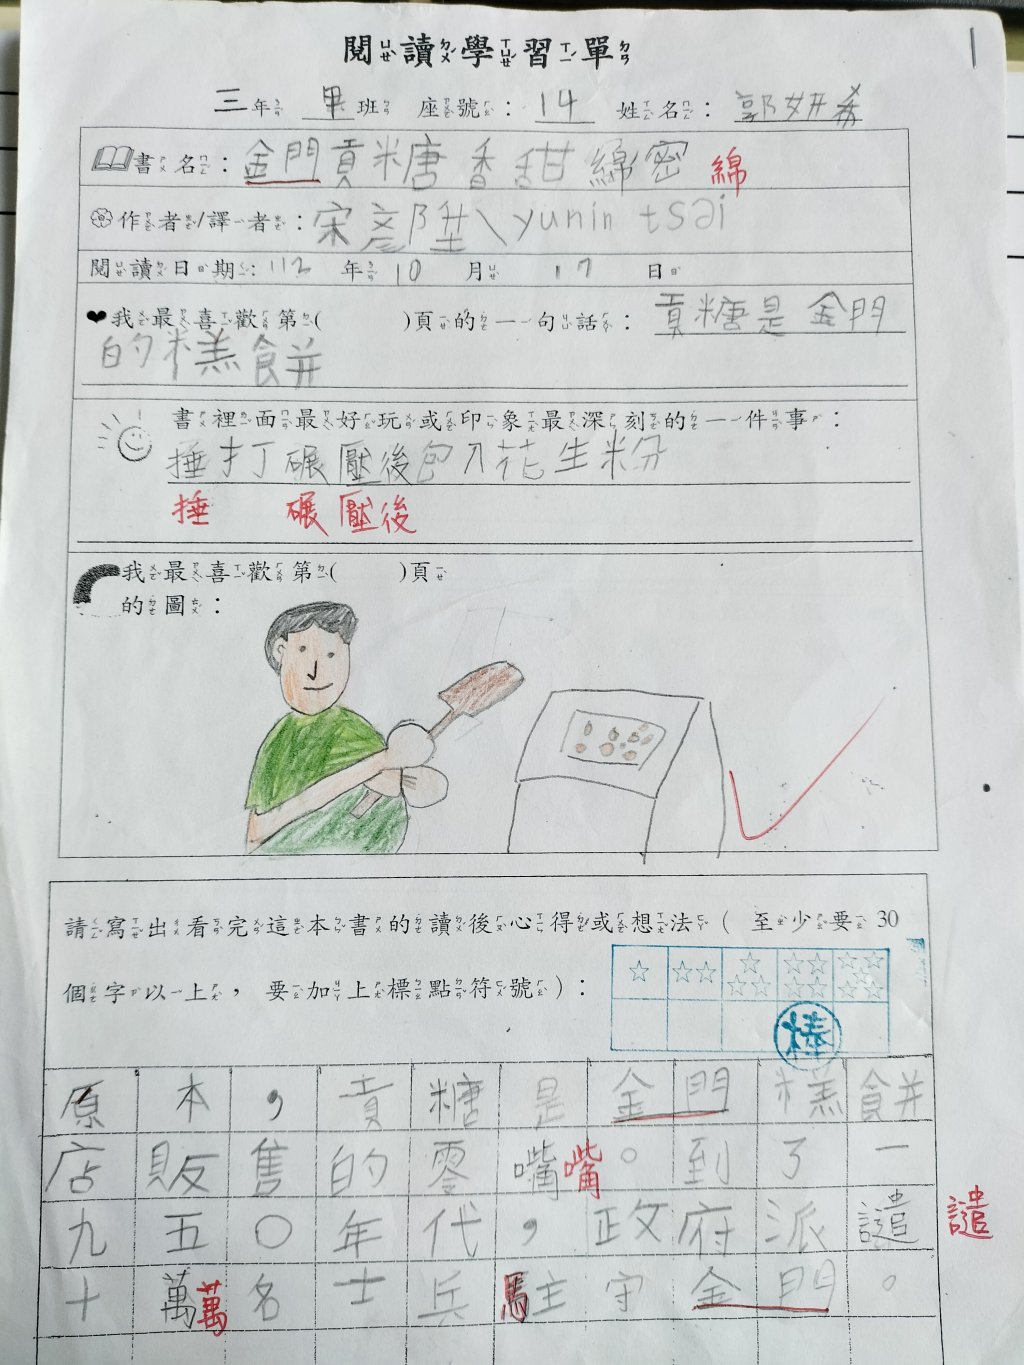 閱讀學習單
三年 畢班 座號：14 姓名：郭妍希
書名：金門貢糖香甜綿密 綿
作者/譯者：宋彥陞、yunin tsai
閱讀日期：112年10月17日
我最喜歡第( )頁的一句話：貢糖是金門
的糕餅
書裡面最好玩或印象最深刻的一件事：
捶打碾壓後包入花生粉
捶 碾壓後
我最喜歡第( )頁
的圖：
請寫出看完這本書的讀後心得或想法（至少要30
個字以上，要加上標點符號）：
☆ ☆☆ ☆☆☆ ☆☆☆☆ ☆☆☆☆☆
棒
原本，貢糖是金門糕餅
店販售的零嘴嘴。到了一
九五〇年代，政府派譴 譴
十萬萬名士兵駐守金門。